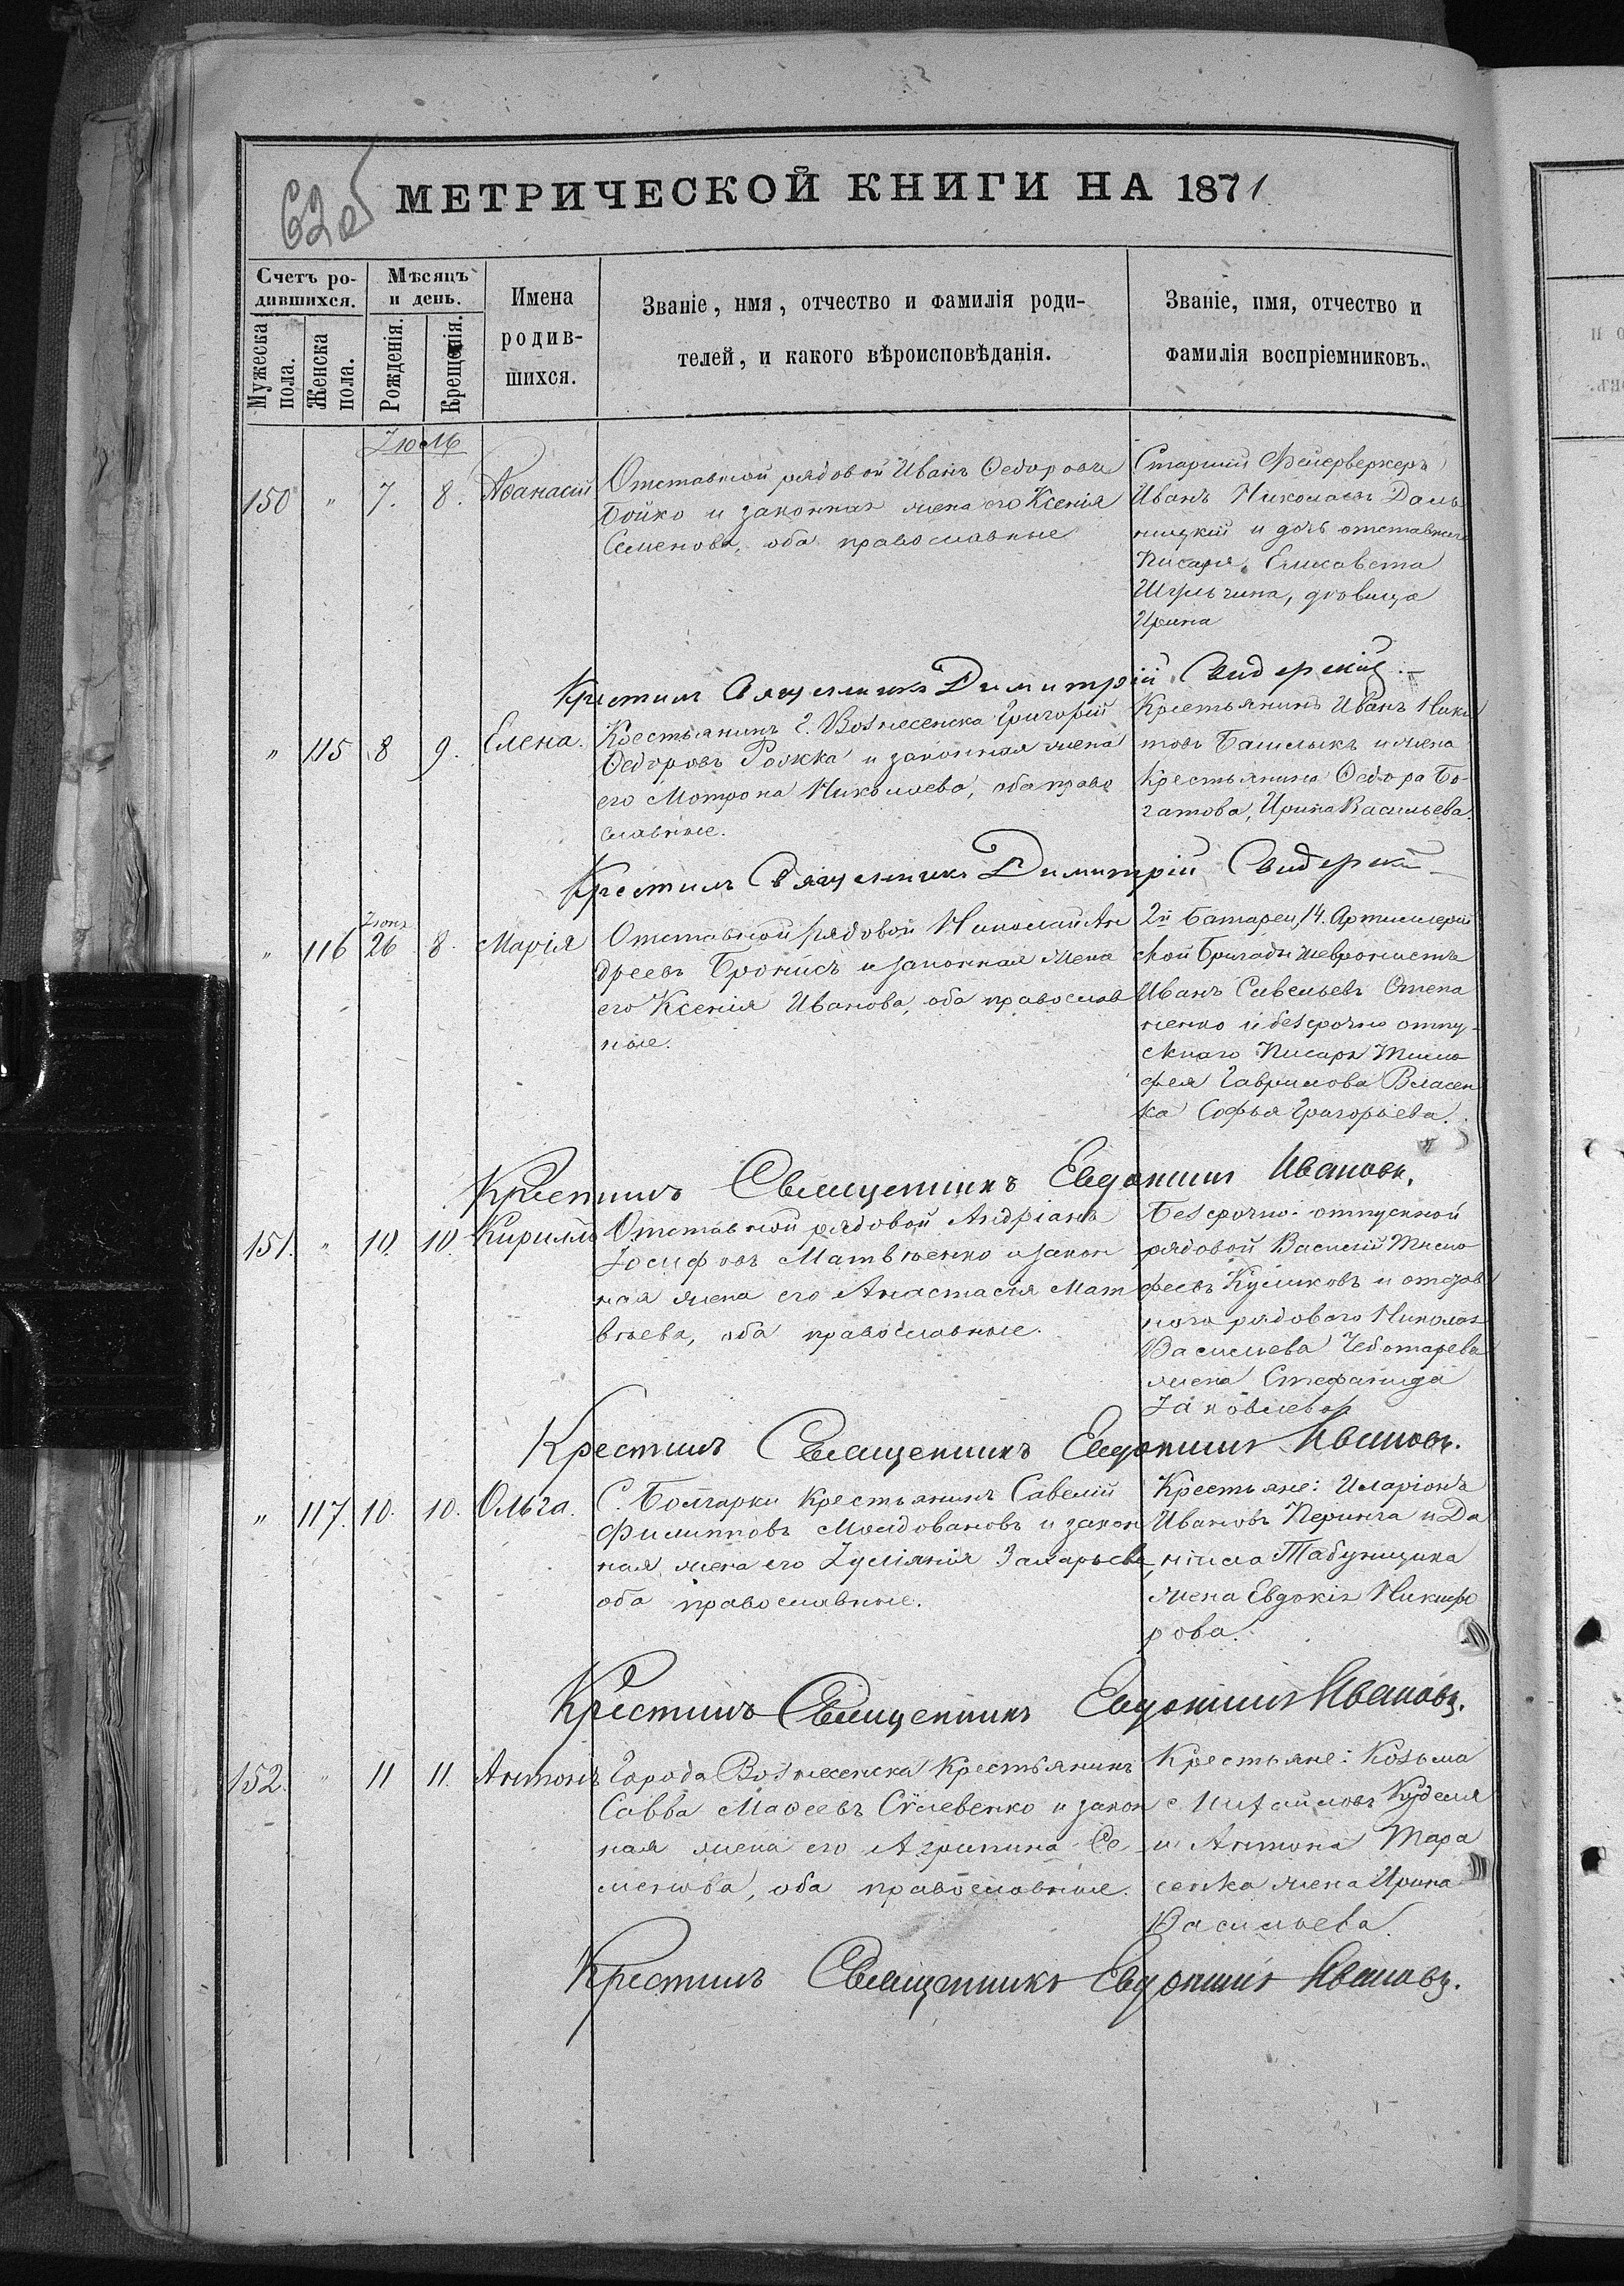 62об
МЕТРИЧЕСКОЙ КНИГИ НА 1871
Счетъ ро-
дившихся.
Мѣсяцъ
и день.
Имена
родив-
шихся.
Званіе, имя, отчество и фамилія роди-
телей, и какого вѣроисповѣданія.
Званіе, имя, отчество и
фамилія воспріемниковъ.
Мужеска
пола.
Женска
пола.
Рожденія.
Крещенія.
Іюль
150 " 7. 8. Аѳанасій
Отставной рядовой Иванъ Ѳедоровъ
Бойко и законная жена его Ксенія
Семенова, оба православные
Старшій Фейерверкеръ
Иванъ Николаевъ Даль
ницкій и дочь отставнаго
Писаря, Елисавета
дѣвица
Ирина
Крестилъ Священникъ Димитрій Свидерскій
" 115 8 9. Елена.
Крестьянинъ г. Вознесенска Григорій
Ѳедоровъ Рожка и законная жена
его Мотрона Николаева, оба право
славные.
Крестьянинъ Иванъ Ники
товъ Башлыкъ и жена
Крестьянина Ѳедора Бо-
гатова, Ирина Васильева.
Крестилъ Священникъ Димитрій Свидерскій
" 116 Іюня 26 8. Марія
Отставной рядовой Николай Ан
дреевъ Бронисъ и законная жена
его Ксенія Иванова, оба православ
ные.
2й Батареи, 14. Артиллерій
ской Бригады шевронистъ
Иванъ Савельевъ Степа
ненко и безсрочно отпу-
скнаго Писаря Тимо
фея Гаврилова Власен
ка Софья Григорьева.
Крестилъ Священникъ Евдокимъ Ивановъ.
151. " 10. 10. Кириллъ
Отставной рядовой Андріанъ
Іосифовъ Матвѣенко и закон
ная жена его Анастасія Мат
вѣева, оба православные.
Безсрочно-отпускной
рядовой Василій Тимо
феевъ Куликовъ и отстав
ного рядового Николая
Василиева Чеботарева
жена Стефанида
Іаковлева
Крестилъ Священникъ Евдокимъ Ивановъ.
" 117. 10. 10. Ольга.
С. Болгарки Крестьянинъ Савелій
Филипповъ Молдовановъ и закон
ная жена его Іуліянія Захарьева,
оба православные.
Крестьяне: Иларіонъ
Ивановъ Перинга и Да
ніила Табунщика
жена Евдокія Никифо
рова.
Крестилъ Священникъ Евдокимъ Ивановъ.
152. " 11 11. Антонъ
Города Вознесенска Крестьянинъ
Савва Маѳеевъ Сулевенко и закон
ная жена его Агрипина Се
менова, оба православные.
Крестьяне: Козьма
Михайловъ Куделя
и Антона Тара
сенка жена Ирина
Васильева
Крестилъ Священникъ Евдокимъ Ивановъ.